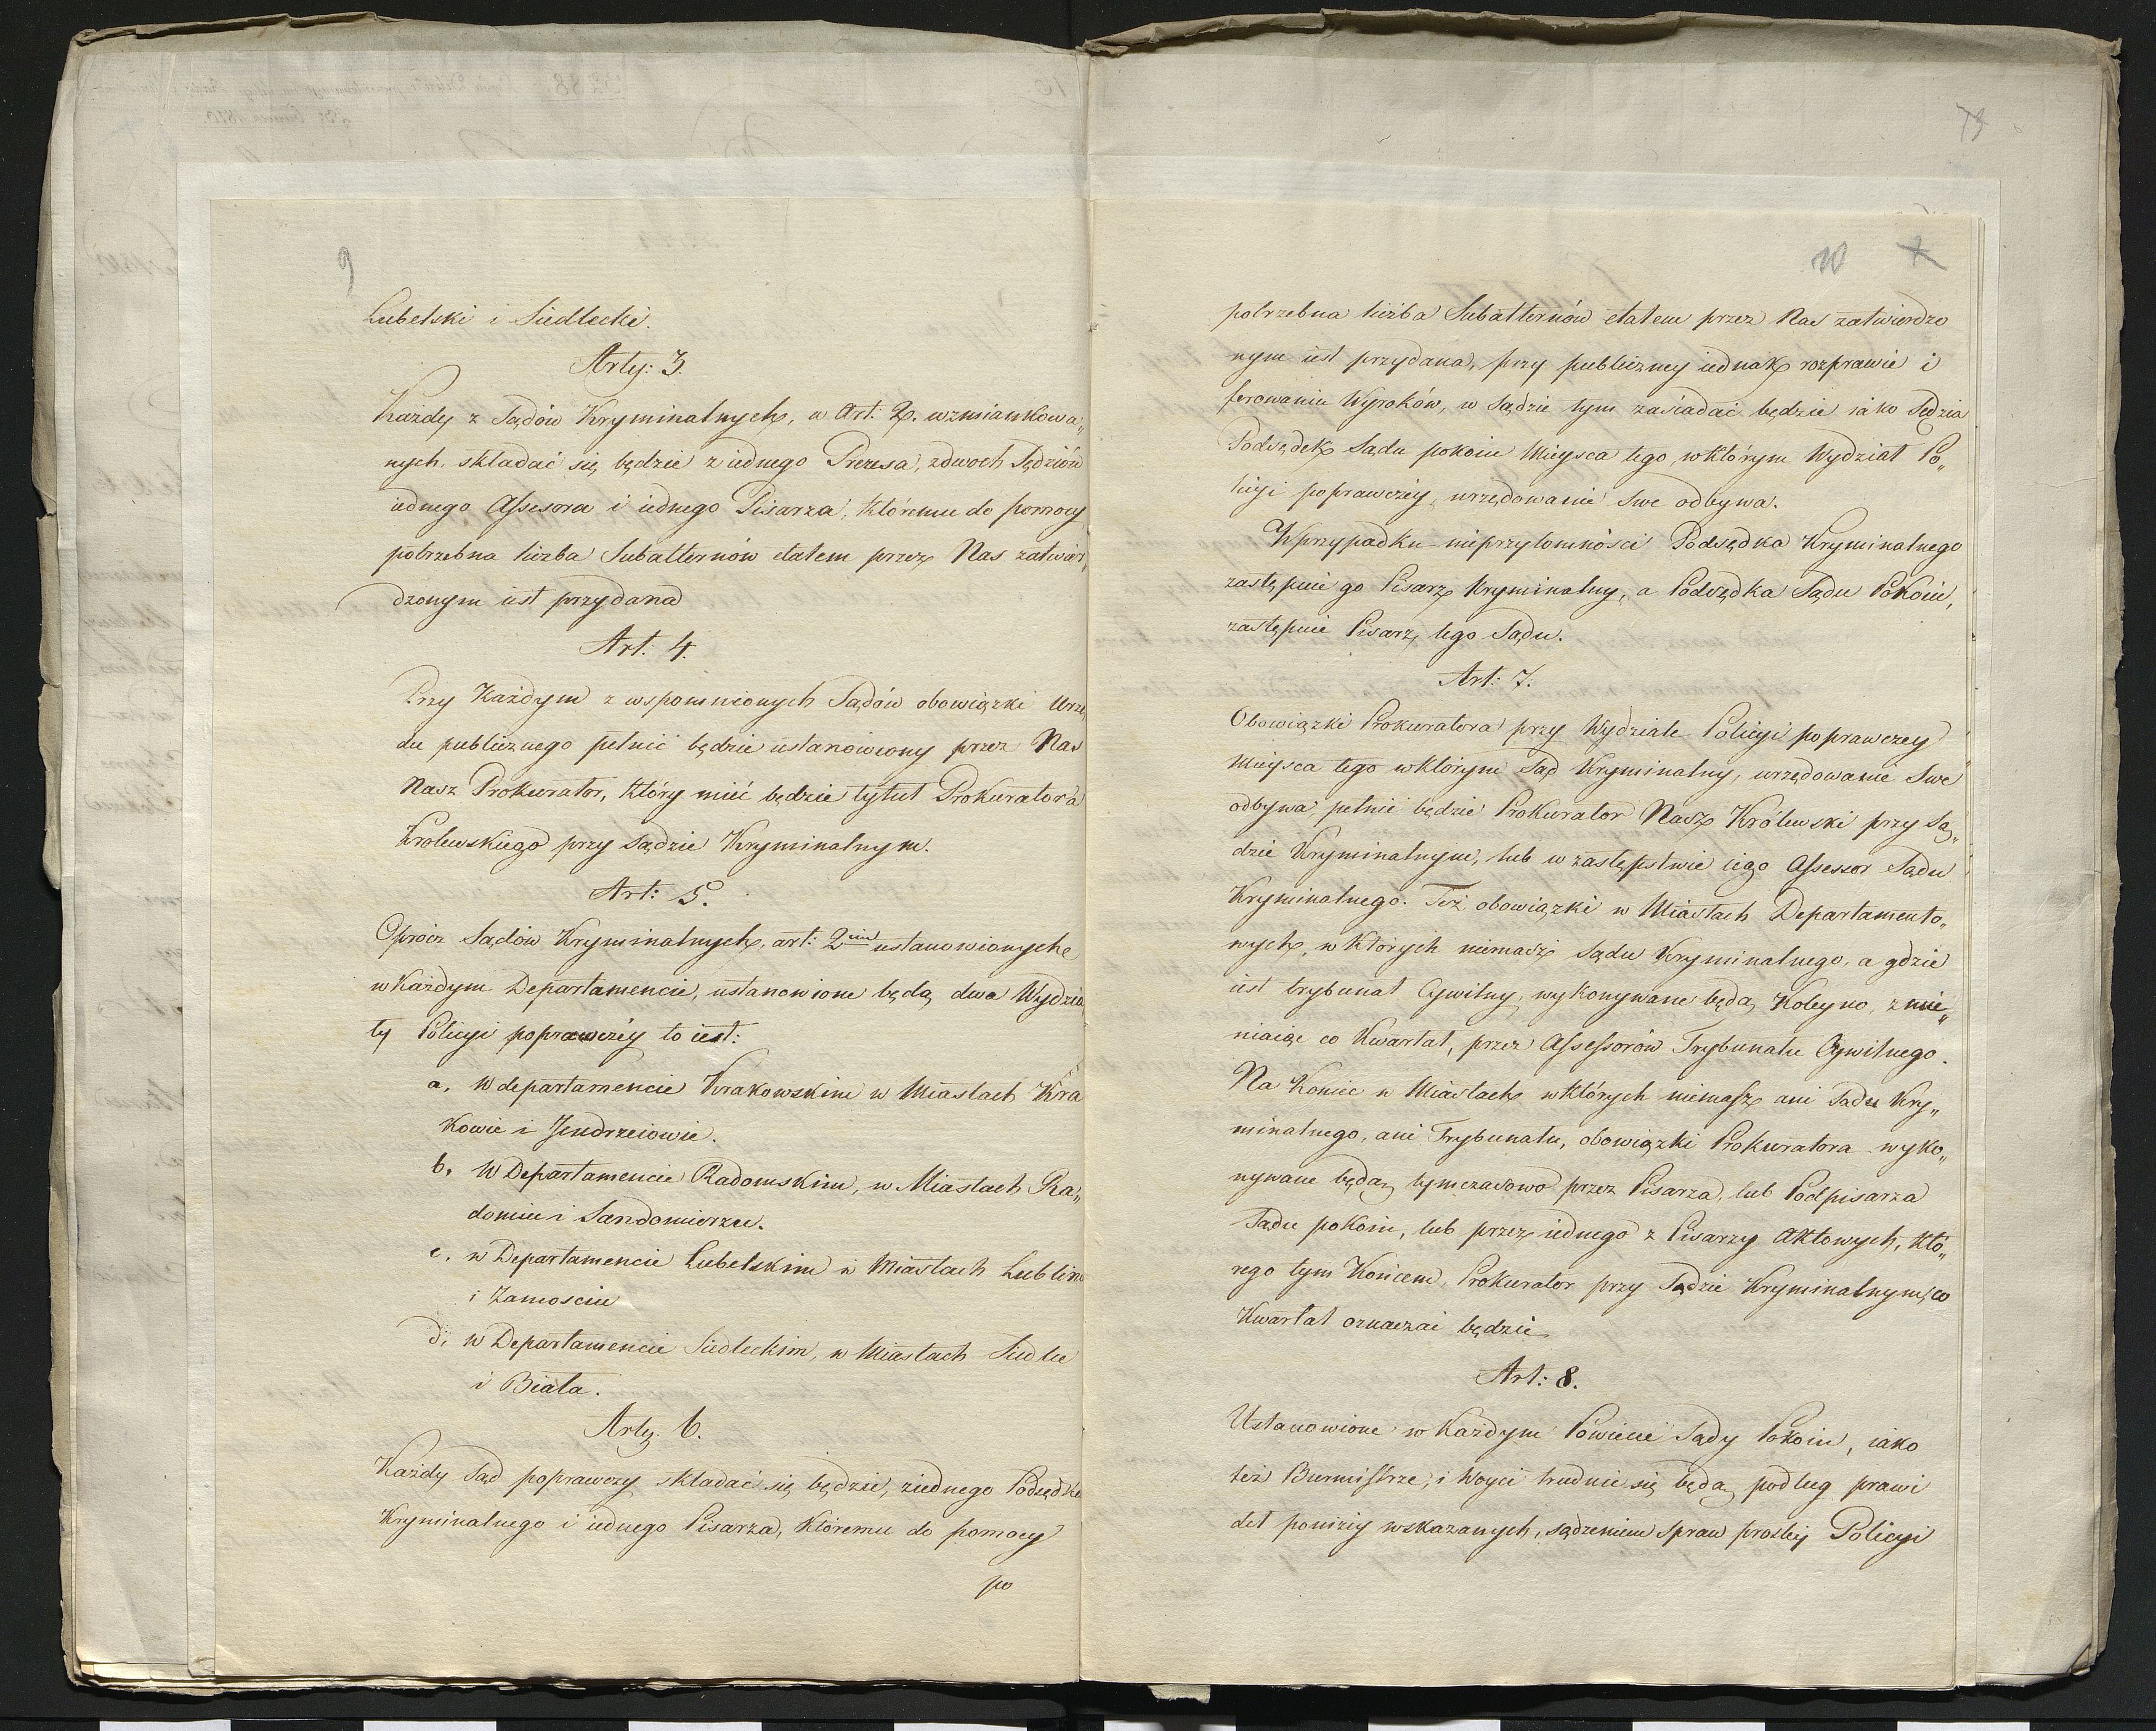 9
Lubelski i Siedlecki.
Arty: 3.
Każdy z Sądów Kryminalnych, w Art: 2. wzmiankowa„
nych, składać się będzie z iednego Prezesa, zdwoch Sędziów
iednego Assesora i iednego Pisarza, któremu do pomocy
potrzebna liczba Subalternów etatem przez Nas zatwier„
dzonym iest przydana
Art: 4.
Przy Każdym z wspomnionych Sądów obowiązki Urzę
du publicznego pełnić będzie ustanowiony przez Nas
Nasz Prokurator, który mieć będzie tytuł Prokuratora
Krolewskiego przy Sądzie Kryminalnym.
Art: 5.
Oprócz Sądów Kryminalnych, art: 2im ustanowionych
w Każdym Departamencie, ustanowione będą dwa Wydzia
ły Policyi poprawczéy to iest:
a, W departamencie Krakowskim w Miastach Kra
kowie i Jendrzeiowie.
b, W Departamencie Radomskim, w Miastach Ra„
domiu i Sandomierzu.
c, w Departamencie Lubelskim w Miastach Lublin
i Zamosciu
d, w Departamencie Siedleckim, w Miastach Siedlce
i Biała.
Arty. 6.
Każdy Sąd poprawczy składać się będzie, ziednego Podsędka
Kryminalnego i iednego Pisarza, Któremu do pomocy
po
73
10
potrzebna liczba Subalternów etatem przez Nas zatwierdzo
nym iest przydana, przy publiczney iednak rozprawie i
ferowaniu Wyroków, w Sądzie tym zasiadać będzie iako Sędzia
Podsędek Sądu pokoiu Mieysca tego, wktórym Wydział Po„
licyi poprawczéy, urzędowanie swe odbywa.
Wprzypadku nieprzytomności Podsędka Kryminalnego
zastępuie go Pisarz Kryminalny, a Podsędka Sądu Pokoiu,
zastępuie Pisarz tego Sądu.
Art: 7.
Obowiązki Prokuratora przy Wydziale Policyi poprawczey
Mieysca tego wktórym Sąd Kryminalny, urzędowanie Swe
odbywa, pełnić będzie Prokurator Nasz Królewski przy Są„
dzie Kryminalnym, lub w zastępstwie iego Assessor Sądu
Kryminalnego. Też obowiązki w Miastach Departamento„
wych, w Których niemasz Sądu Kryminalnego, a gdzie
iest trybunał Cywilny, wykonywane będą Koleyno, zmie„
niaiąc co Kwartał, przez Assessorów Trybunału Cywilnego.
Na Koniec w Miastach w których niemasz ani Sądu Kry„
minalnego, ani Trybunału, obowiązki Prokuratora wyko„
nywane będą tymczasowo przez Pisarza, lub Podpisarza
Sądu pokoiu, lub przez iednego z Pisarzy Aktowych, któ„
rego tym Końcem, Prokurator przy Sądzie Kryminalnym, co
Kwartał oznaczać będzie
Art: 8.
Ustanowione w Każdym Powiecie Sądy Pokoiu, iako
też Burmistrze, i Woyci trudnić się będą podług prawi
deł poniżéy wskazanych, sądzeniem Spraw prostéy Policyi